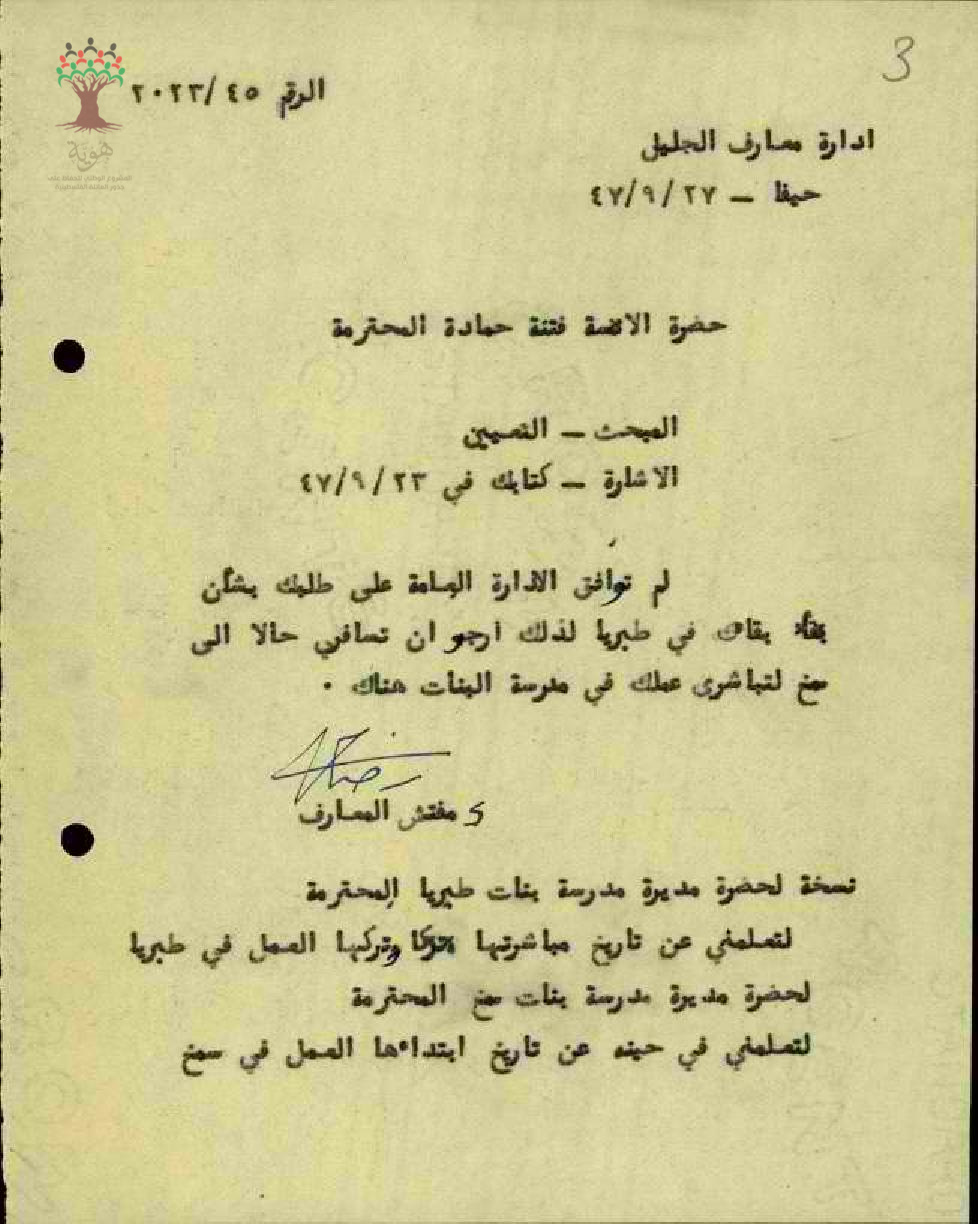 3
هوية
الرقم ٢٠٢٣/٤٥
ادارة معارف الجليل
حيفا — ٤٧/٩/٢٧
حضرة الانسة فتنة حمادة المحترمة
المبحث — التعيين
الاشارة — كتابك في ٤٧/٩/٢٣
لم توافق الادارة العامة على طلبك بشأن
بقاك في طبريا لذلك ارجو ان تسافري حالا الى
سمخ لتباشرى عملك في مدرسة البنات هناك ٠
مفتش المعارف
نسخة لحضرة مديرة مدرسة بنات طبريا المحترمة
لتعلمني عن تاريخ مباشرتها وتركها العمل في طبريا
لحضرة مديرة مدرسة بنات سمخ المحترمة
لتعلمني في حينه عن تاريخ ابتداءها العمل في سمخ